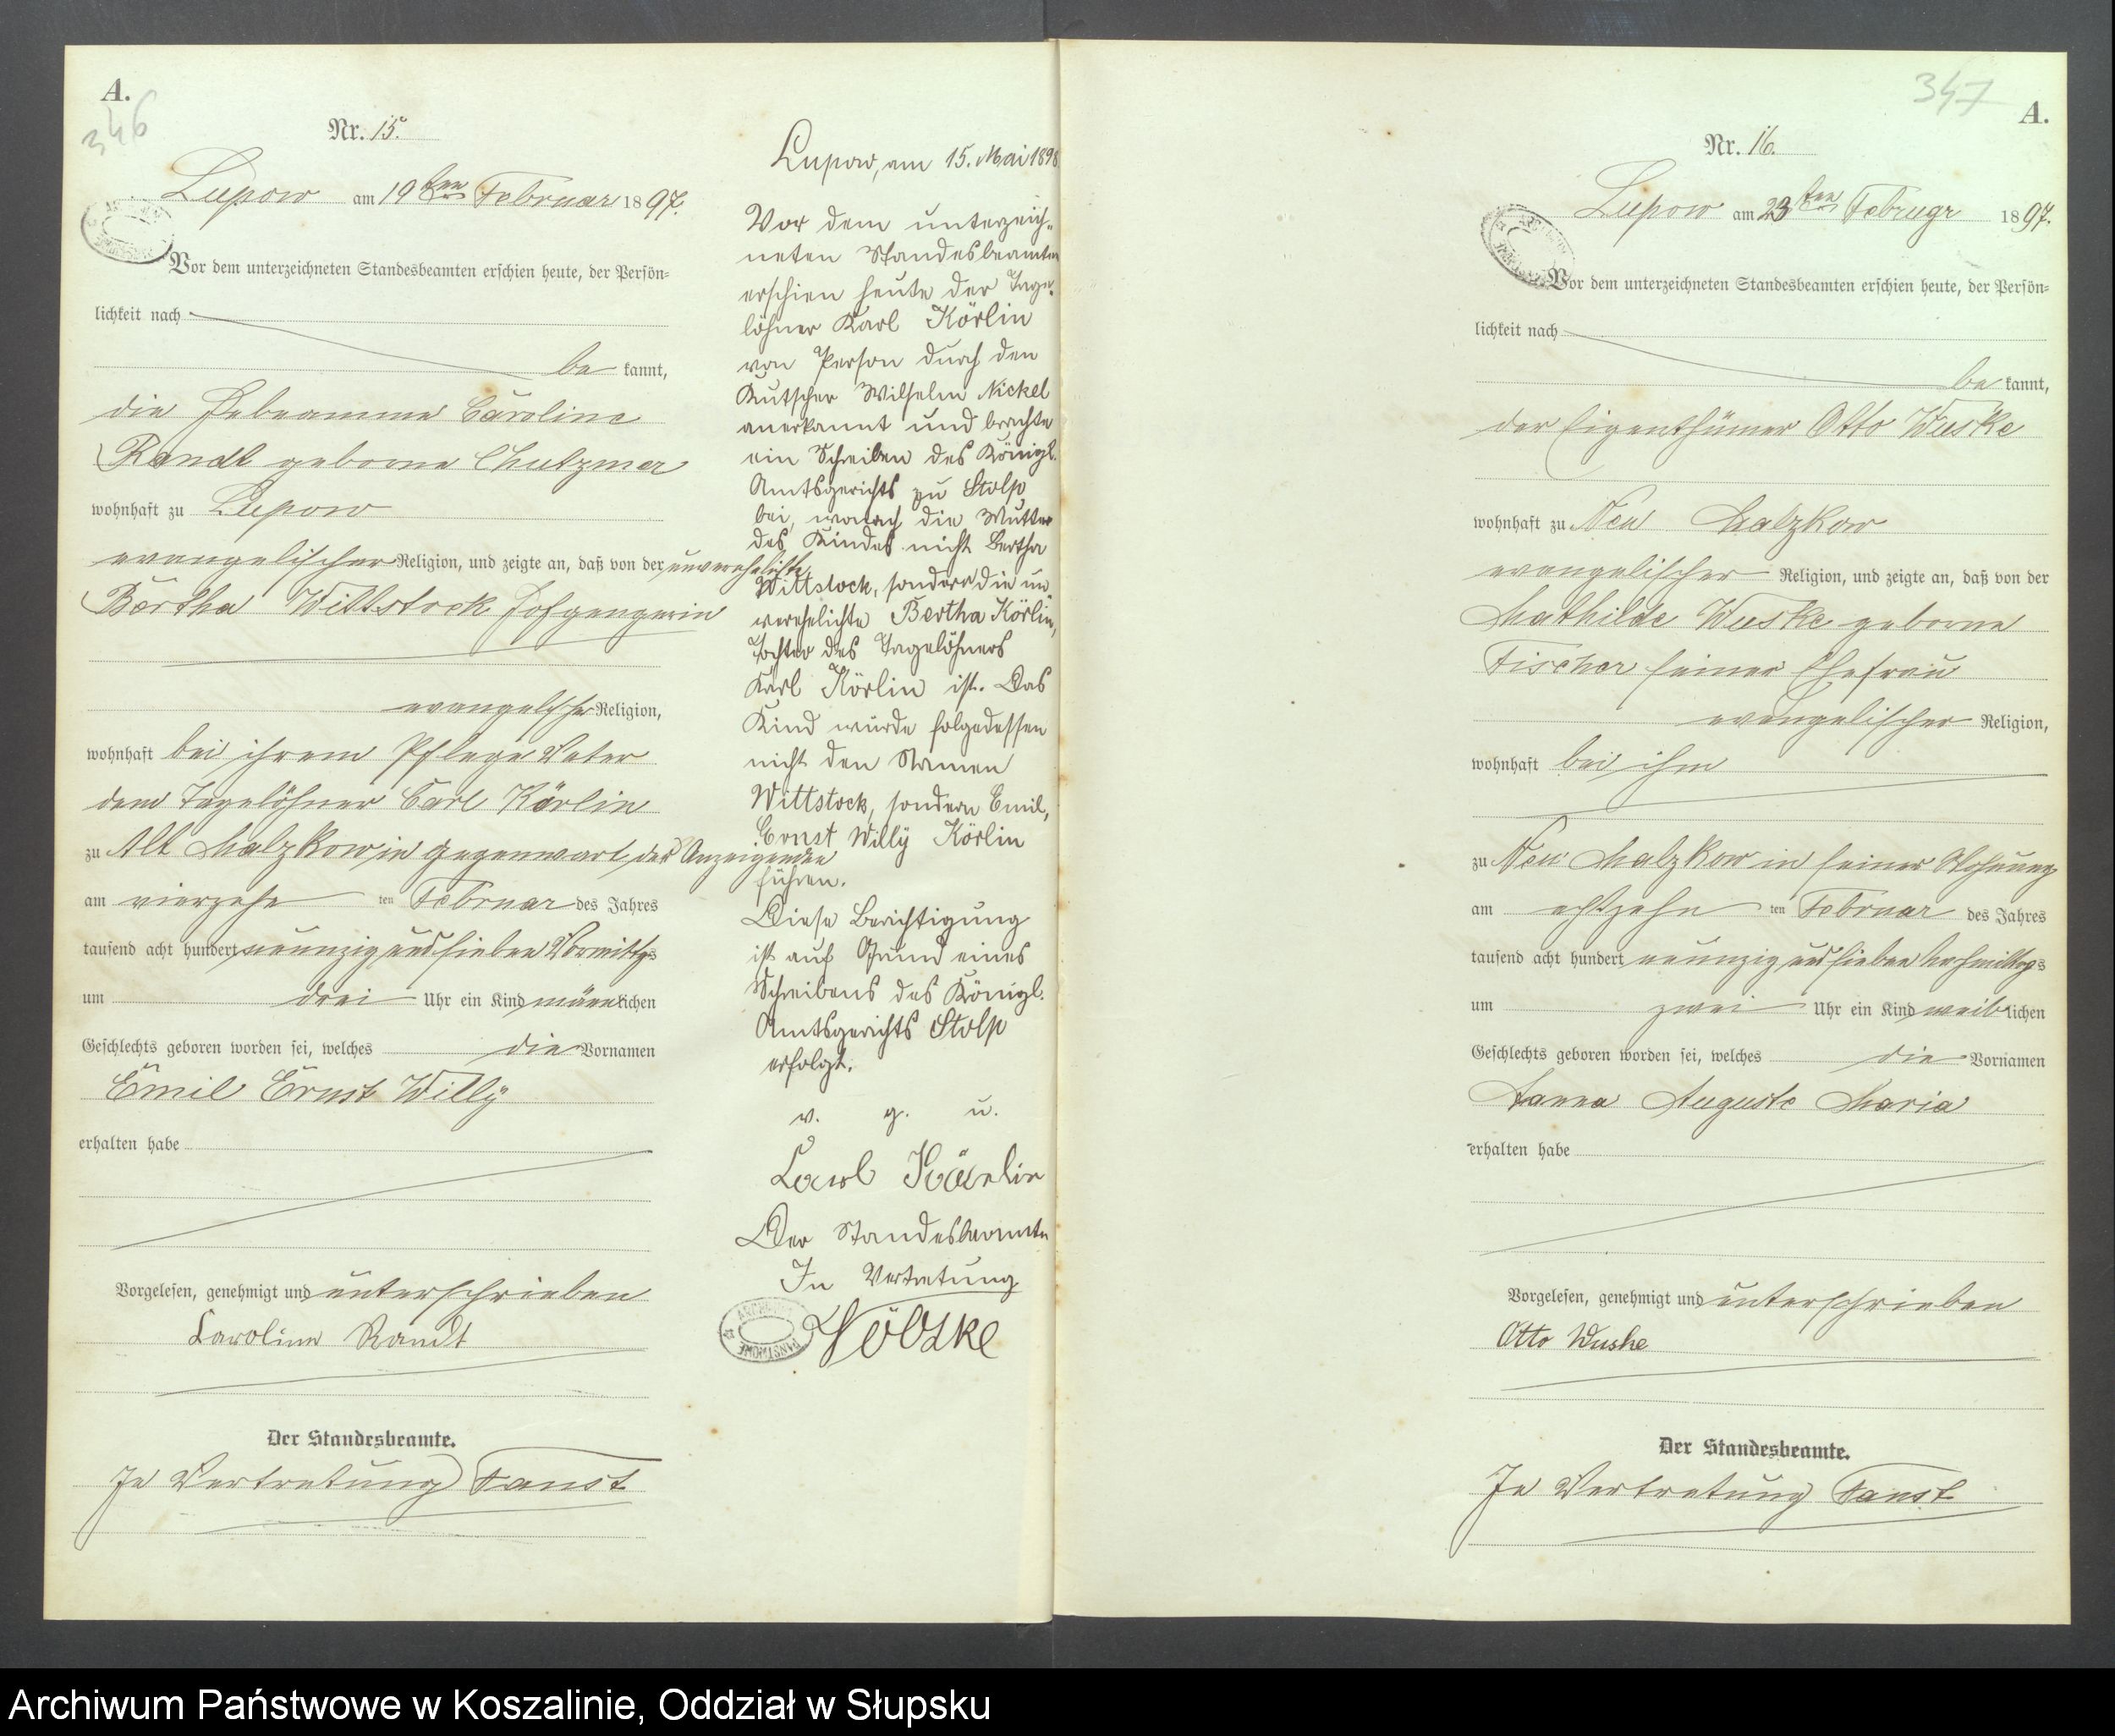 A.
346
Nr. 15.
Lupow am 19ten Februar 1897.
Vor dem unterzeichneten Standesbeamten erschien heute, der Persön=
lichkeit nach
be kannt,
die Hebeamme Caroline
Randt geborne
wohnhaft zu Lupow
evangelischer Religion, und zeigte an, daß von der unverehelichte
Bertha Wittstock Hofgengerin
evangelischer Religion,
wohnhaft bei ihrem Pflege Vater
dem Tagelöhner Carl Körlin
zu Alt Malzkow in gegenwart der Anzeigenden
am vierzehn ten Februar des Jahres
tausend acht hundert neunzig und sieben Vormittags
um drei Uhr ein Kind männlichen
Geschlechts geboren worden sei, welches die Vornamen
Emil Ernst Willy
erhalten habe
Vorgelesen, genehmigt und unterschrieben
Caroline Randt
Der Standesbeamte.
In Vertretung Faust
Lupow, am 15. Mai 1898
Vor dem unterzeich=
neten Standesbeamten
erschien heute der Tage=
löhner Karl Körlin
von Person durch den
Kutscher Wilhelm Nickel
anerkannt und brachte
ein Schreiben des Königl.
Amtsgerichts zu Stolp
bei, wonach die Mutter
des Kindes nicht Bertha
Wittstock, sondern die un
verehelichte Bertha Körlin,
Tochter des Tagelöhners
Karl Körlin ist. Das
Kind würde folgedessen
nicht den Namen
Wittstock, sondern Emil,
Ernst Willy Körlin
führen.
Diese Berichtigung
ist auf Grund eines
Schreibens des Königl.
Amtsgerichts Stolp
erfolgt.
v. g. u.
Carl Köerlin
Der Standesbeamte
In Vertretung
347
A.
Nr. 16.
Lupow am 23ten Februar 1897.
Vor dem unterzeichneten Standesbeamten erschien heute, der Persön=
lichkeit nach
be kannt,
der Eigenthümer Otto Wuske
wohnhaft zu Neu Malzkow
evangelischer Religion, und zeigte an, daß von der
Mathilde Wuske geborne
Fischer seiner Ehefrau
evangelischer Religion,
wohnhaft bei ihm
zu Neu Malzkow in seiner Wohnung
am achtzehn ten Februar des Jahres
tausend acht hundert neunzig und sieben Nachmittags
um zwei Uhr ein Kind weiblichen
Geschlechts geboren worden sei, welches die Vornamen
Auguste Maria
erhalten habe
Vorgelesen, genehmigt und unterschrieben
Otto Wuske
Der Standesbeamte.
In Vertretung Faust
Archiwum Państwowe w Koszalinie, Oddział w Słupsku